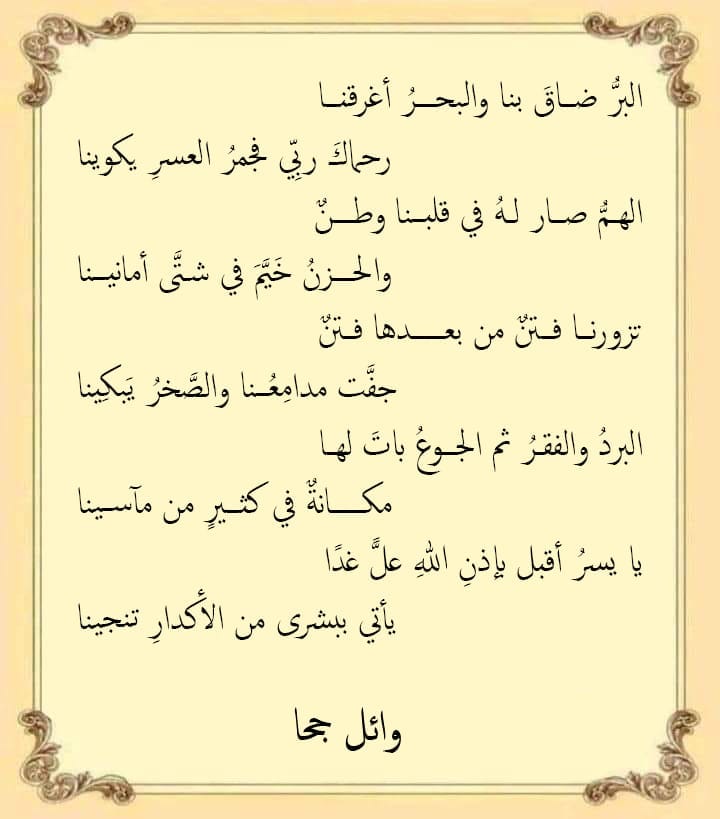 البرُّ ضاقَ بنا والبحرُ أغرقنا
رحماكَ ربِّي فجمرُ العسرِ يكوينا
الهمُّ صار لهُ في قلبنا وطنٌ
والحزنُ خَيَّمَ في شتَّى أمانينا
تزورنا فتنٌ من بعدها فتنٌ
جفَّت مدامِعُنا والصَّخرُ يَبكِينا
البردُ والفقرُ ثم الجوعُ باتَ لها
مكانةٌ في كثيرٍ من مآسينا
يا يسرُ أقبل بإذنِ اللهِ علَّ غدًا
يأتي ببشرى من الأكدارِ تنجينا
وائل جحا